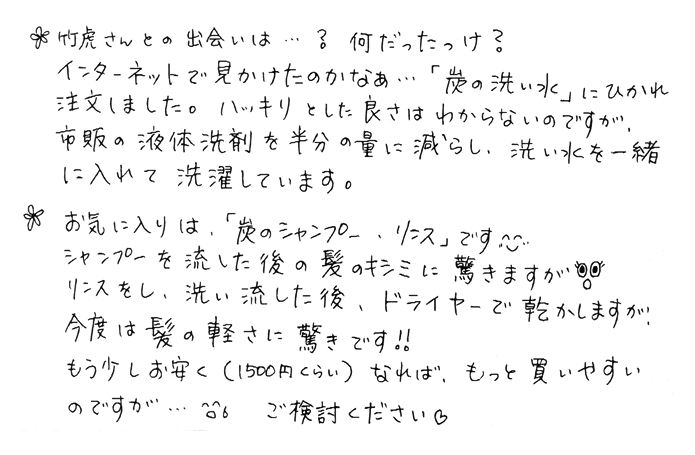 竹虎さんとの出会いは…？ 何だったっけ？
インターネットで見かけたのかなぁ…「炭の洗い水」にひかれ
注文しました。ハッキリとした良さはわからないのですが、
市販の液体洗剤を半分の量に減らし、洗い水を一緒
に入れて洗濯しています。
お気に入りは、「炭のシャンプー、リンス」です
シャンプーを流した後の髪のキシミに驚きますが
リンスをし、洗い流した後、ドライヤーで乾かしますが、
今度は髪の軽さに驚きです!!
もう少しお安く（1500円くらい）なれば、もっと買いやすい
のですが… ご検討ください